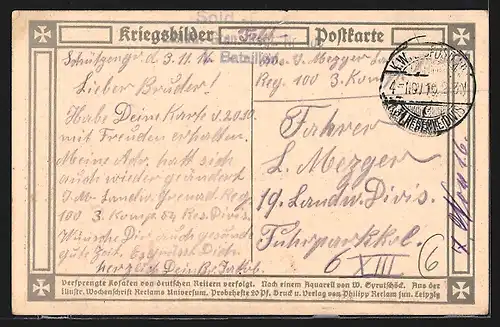 Kriegsbilder Postkarte
Feld
Sold
Bataillon
K.W. 
4-NOV.16.
Schützengr. d. 3.11.16.
Lieber Bruder!
Habe Deine Karte v. 20.10.
mit Freuden erhalten.
Meine Adr. hatt sich
auch wieder geändert
J. M. Landw. Grenad. Reg.
100 3. Komp. 54 Res. Divis.
Wünsche Dir auch gesunde
gute Zeit. Es grüsst Dich
herzlich Dein Br. Jakob.
Abs. J. Mezger Landw.
Reg. 100 3. Komp.
Fahrer
L. Mezger
19. Landw. Divis.
Fuhrparkkol.
XIII
6
Versprengte Kosaken von deutschen Reitern verfolgt. Nach einem Aquarell von W. Eyrutschöck. Aus der
Illustr. Wochenschrift Reclams Universum. Probehefte 20 Pf. Druck u. Verlag von Philipp Reclam jun. Leipzig